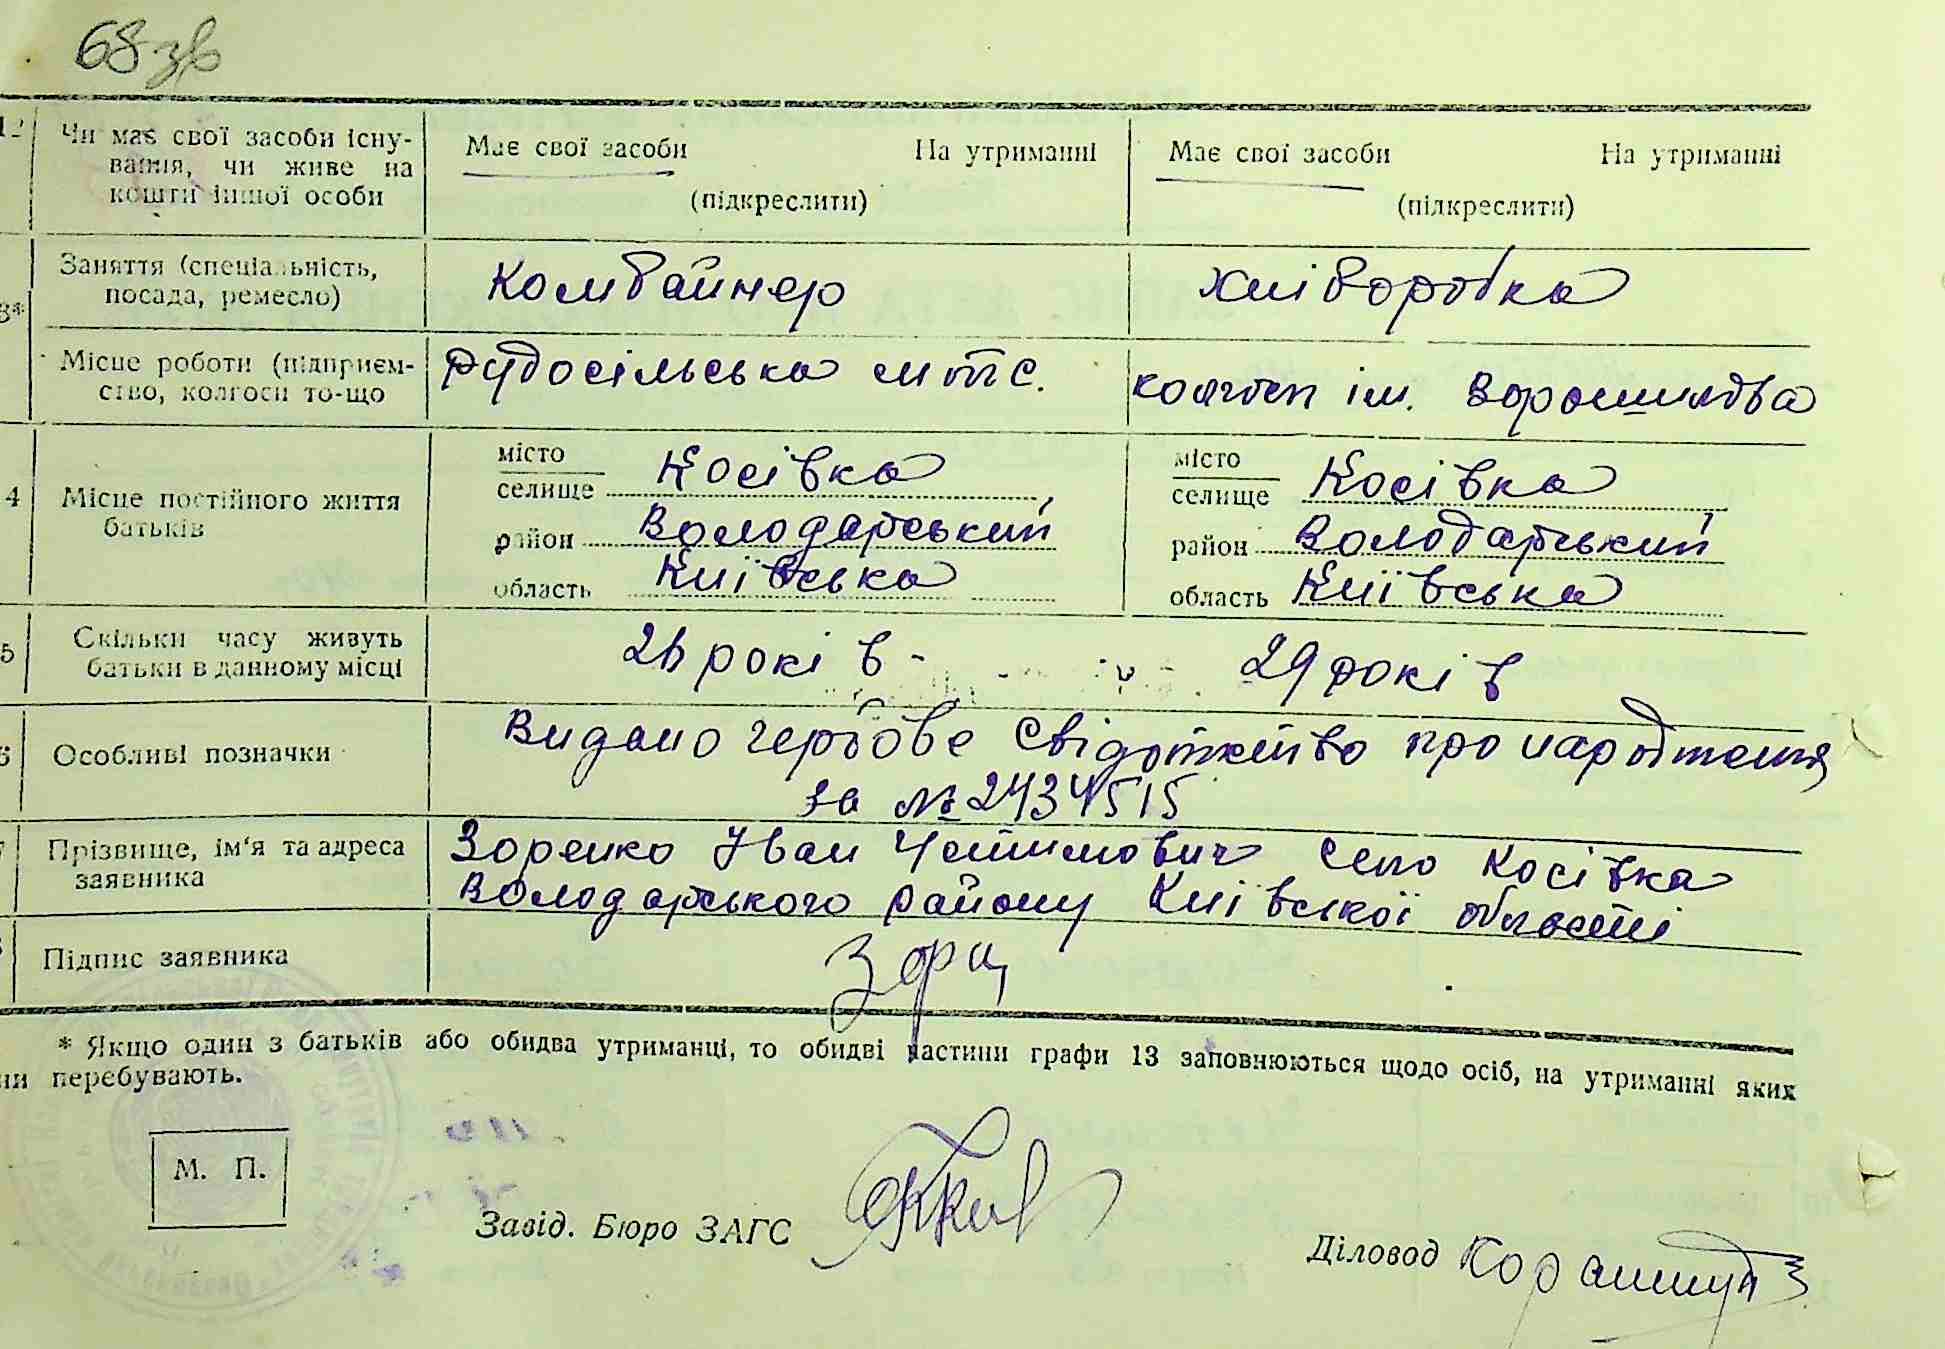 68зв
12 Чи має свої засоби існу-
вання, чи живе на
кошти іншої особи
Має свої засоби На утриманні
(підкреслити)
Має свої засоби На утриманні
(підкреслити)
3*
Заняття (спеціальність,
посада, ремесло)
Комбайнер
Хліборобка
Місце роботи (підприєм-
ство, колгосп то-що
Рудосільська мтс.
колгосп ім. Ворошилова
4 Місце постійного життя
батьків
місто
селище Косівка
район Володарський
область Київська
місто
селище Косівка
район Володарський
область Київська
5 Скільки часу живуть
батьки в данному місці
26 років -
29 років
6 Особливі позначки
Видано гербове свідотство про народження
за № 2434515
7 Прізвище, ім'я та адреса
заявника
Зоренко Іван село Косівка
Володарського району Київської області
Підпис заявника
* Якщо один з батьків або обидва утриманці, то обидві частини графи 13 заповнюються щодо осіб, на утриманні яких
ни перебувають.
М. П.
Завід. Бюро ЗАГС
Діловод